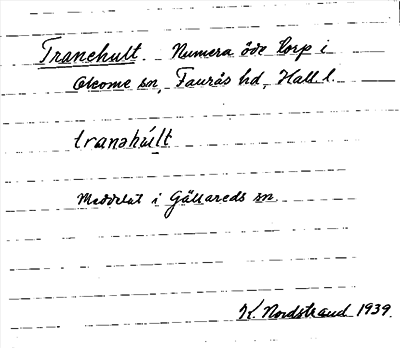 Tranehult. Numera öde torp i
Okome sn, Faurås hd, Hall l.
tranəhúlt
Meddelat i Gällareds sn
K. Nordstrand 1939.